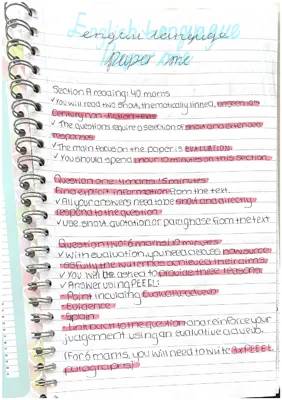 English Language
english language
paper one
Section A reading: 40 marks
✓You will read two short, thematically linked, unseen 21st
Century non-fiction texts
✓The questions require a selection of short and extended
responses
✓The main focus on the paper is EVALUATION.
✓You should spend 1 hour 10 minutes on this section
Question one: 4 marks / 5 minutes
Find explicit information from the text.
✓All your answers need to be short and directly
respond to the question
✓Use short quotation or paraphrase from the text
Question two: 6 marks / 10 minutes
✓With evaluation, you need to discuss how success
fully the writer has achieved their aims
✓You will be asked to provide these reasons
✓Answer using PEEL:
- Point including evaluative adverb
- Evidence
-
- Link back to the question and reinforce your
judgement using an evaluative adverb.
(For 6 marks, you will need to write 3x PEEL
paragraphs)